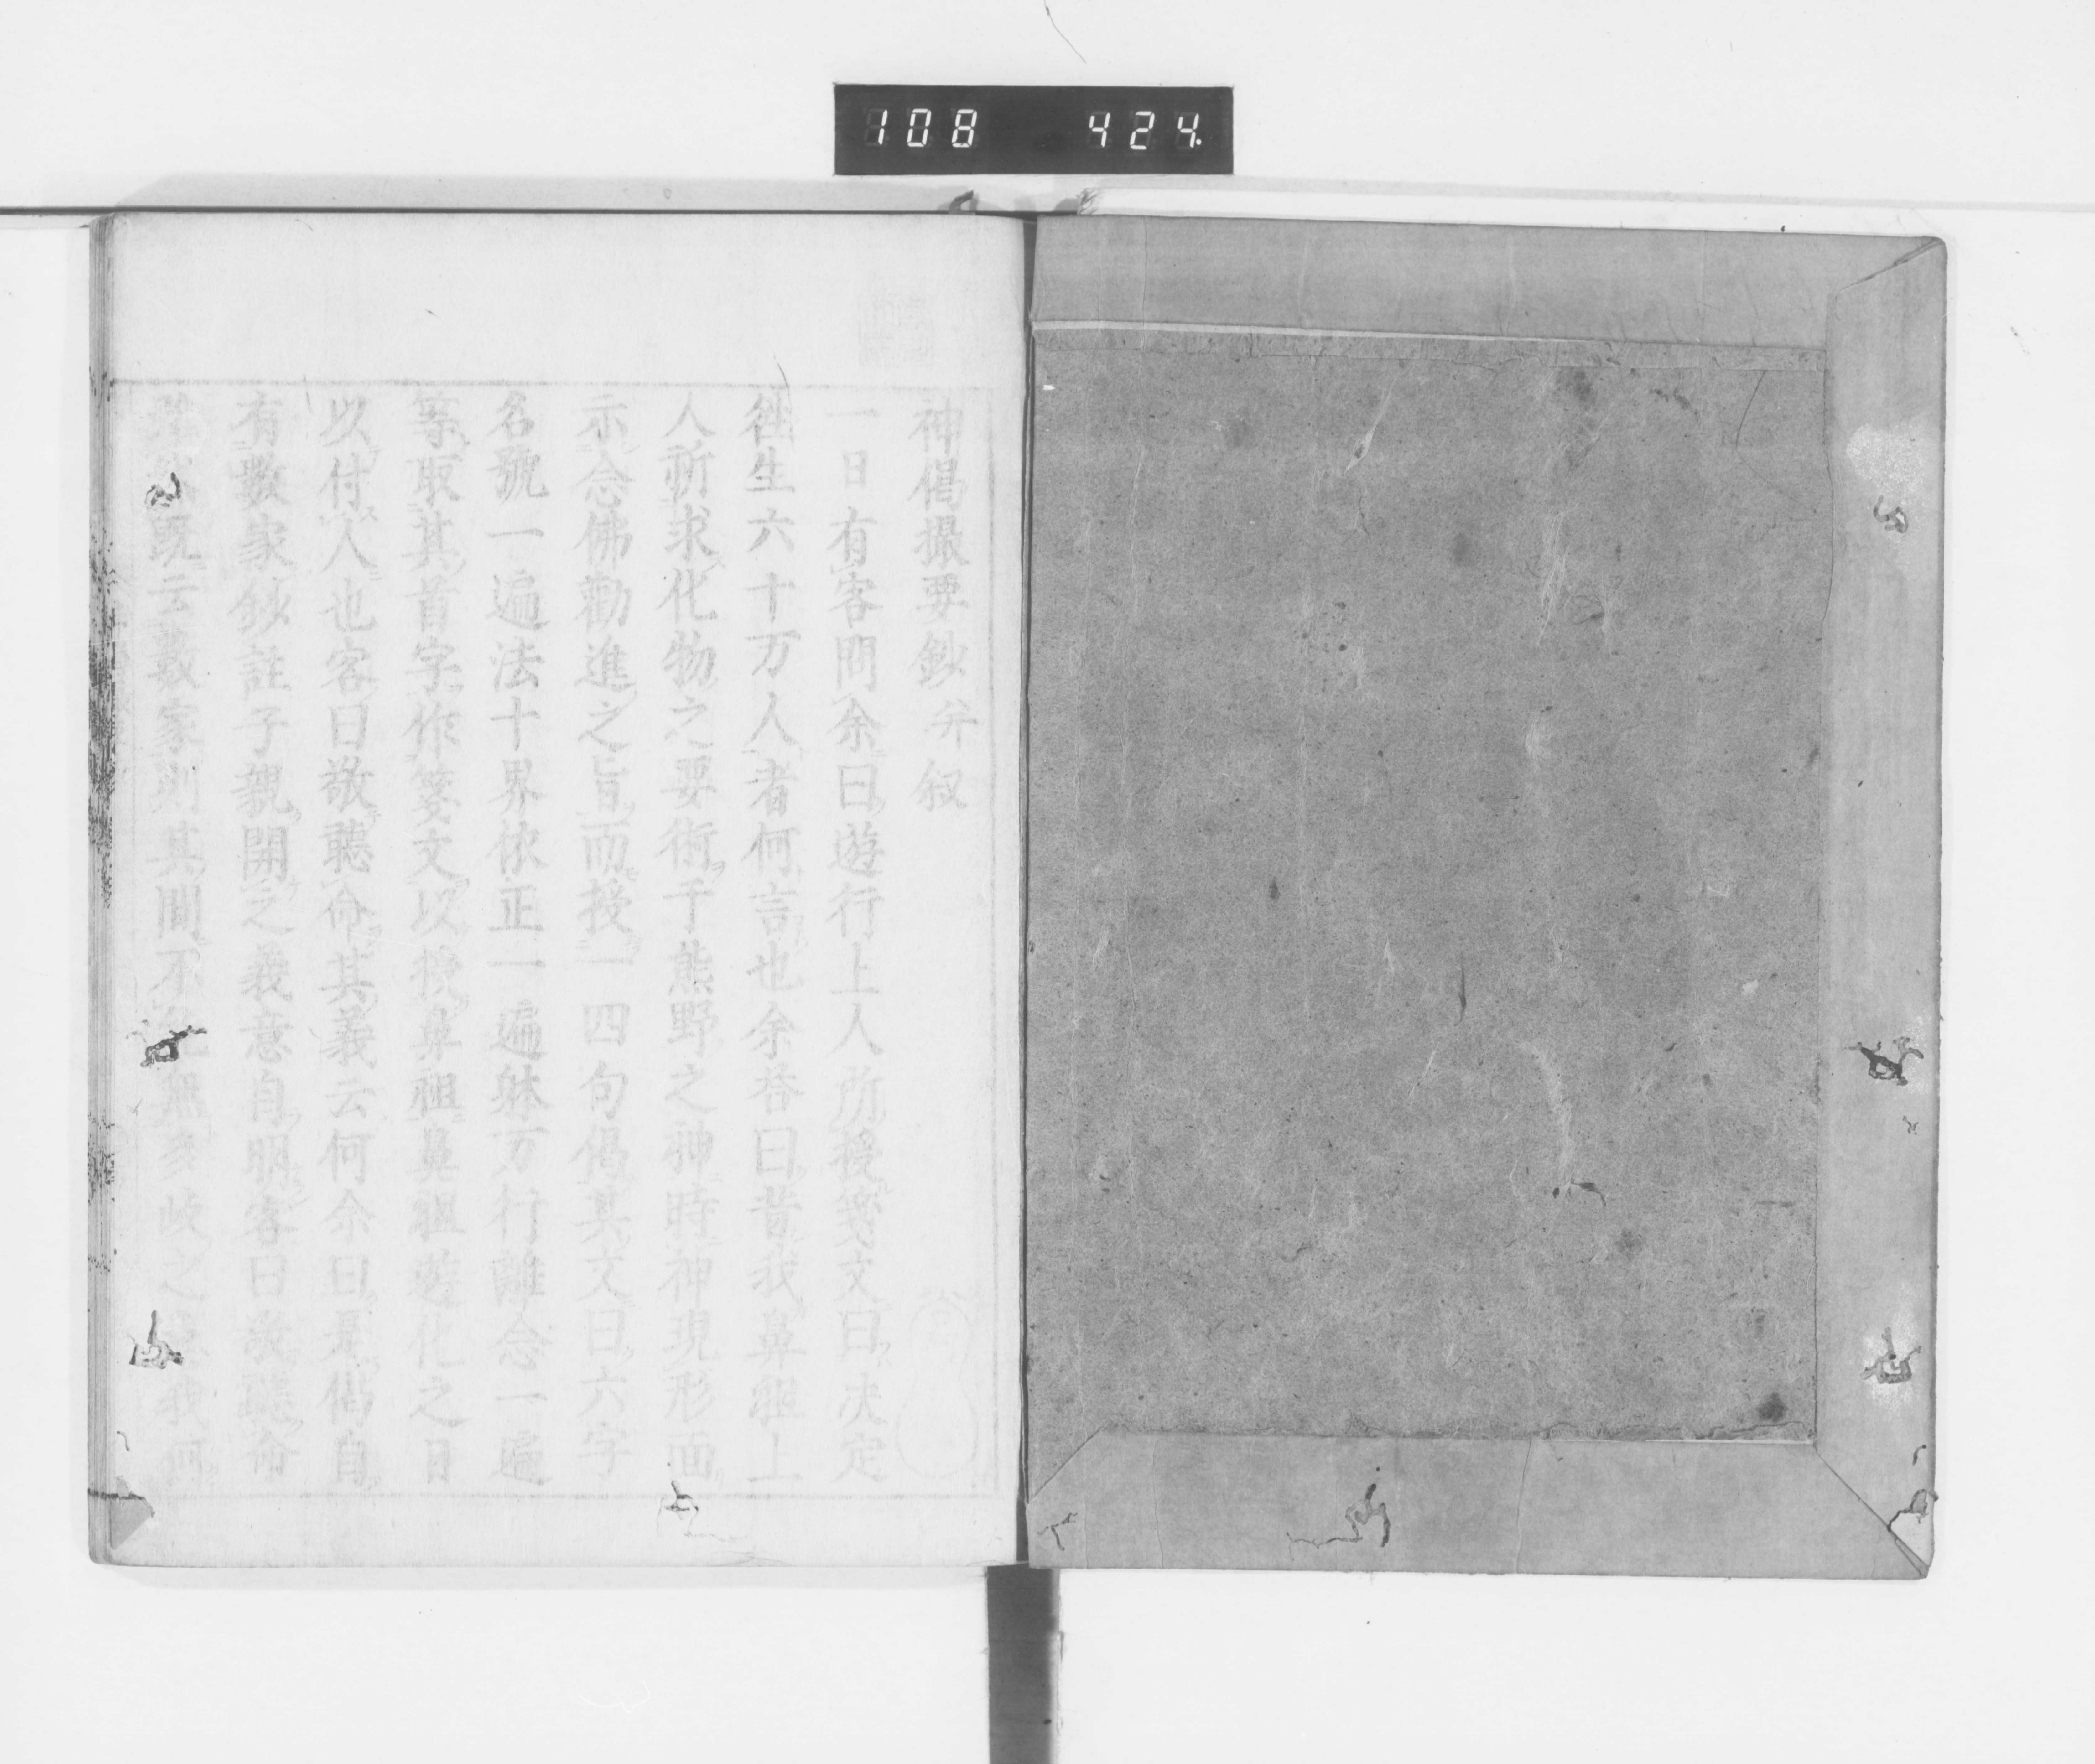 108 424
神偈撮要鈔并叙
一日有客問余曰遊行上人所授箋文曰决定
徃生六十万人者何言也余答曰昔我鼻祖上
人祈求化物之要術于熊野之神時神現形面
示念佛勸進之旨而授一四句偈其文曰六字
名號一遍法十界依正一遍躰万行離念一遍
等取其首字作箋文以授鼻祖鼻祖遊化之日
以付人也客曰敬聽命其義云何余曰是偈自
有數家鈔註子親開之義意自明客曰敬聽命
既云數家則其間不無多岐之我何